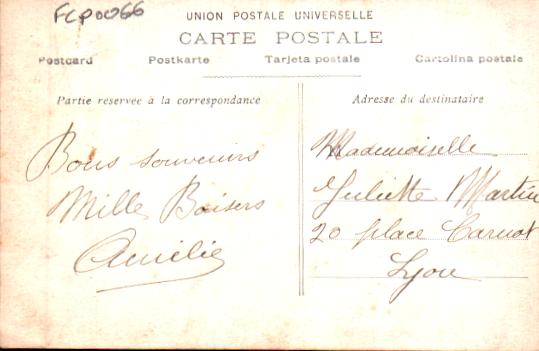 FCP0066
UNION POSTALE UNIVERSELLE
CARTE POSTALE
Postcard Postkarte Tarjeta postale Cartolina postale
Partie reservee à la correspondance
Adresse du destinataire
Bons souvenirs
Mille Baisers
Amélie
Mademoiselle
Juliette Martin
20 place Carnot
Lyon